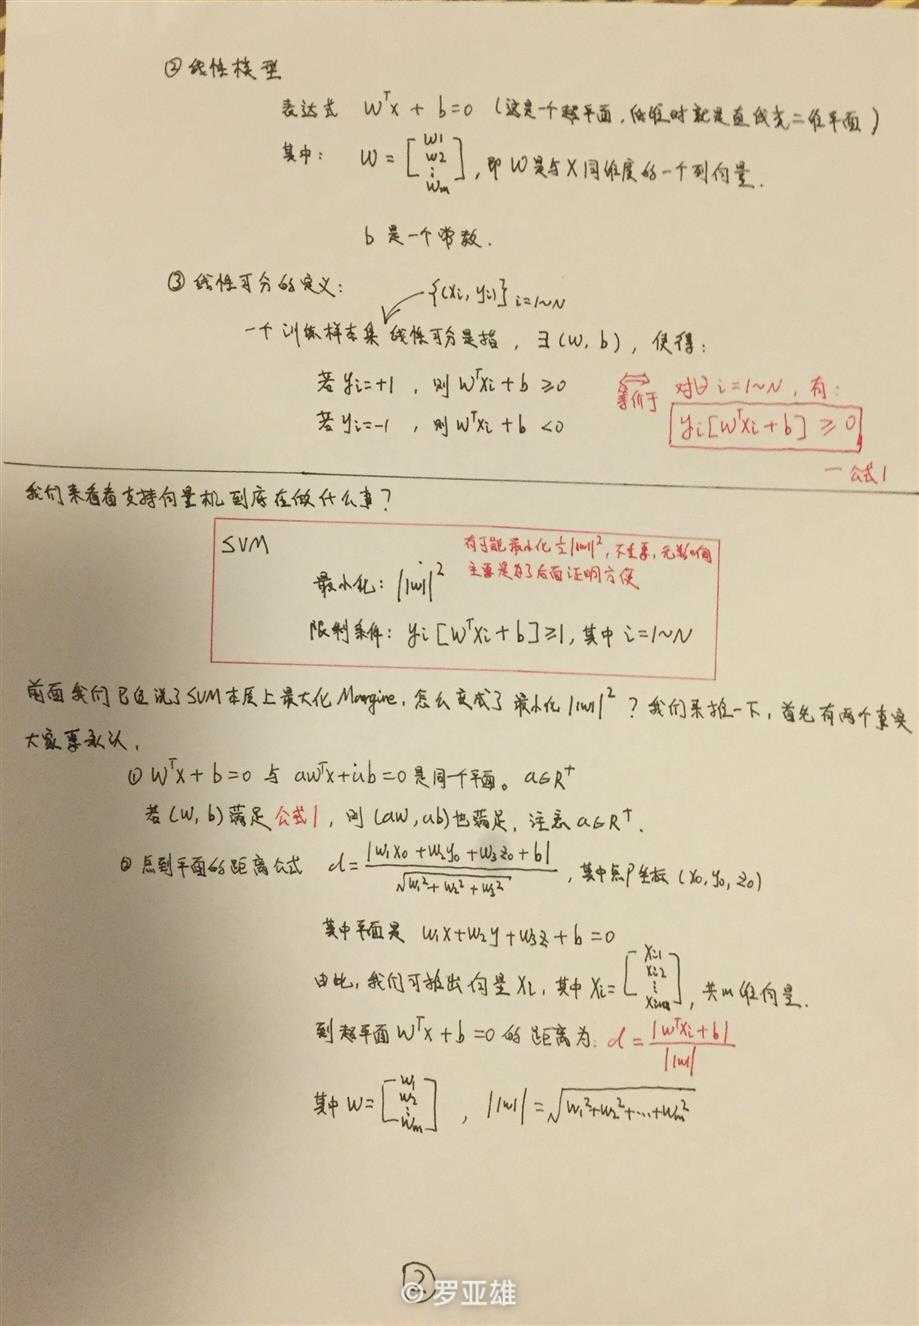 ② 线性模型
表达式 W^T x + b = 0 (这是一个超平面, 低维时就是直线或二维平面)
其中: W = [w1 w2 ⋮ wm], 即 W是与X同维度的一个列向量.
b 是一个常数.
③ 线性可分的定义:
{(xi, yi)} i=1~N
一个训练样本集线性可分是指, ∃(w, b), 使得:
若 yi=+1, 则 W^T xi + b ≥ 0
若 yi=-1, 则 W^T xi + b < 0
⟺ 等价于 对∀ i=1~N, 有:
yi[W^T xi + b] ≥ 0
— 公式1
我们来看看支持向量机到底在做什么事?
SVM
有可能最小化 ½||w||², 不重要, 无影响
主要是为了后面证明方便
最小化: ||w||²
限制条件: yi[W^T xi + b] ≥ 1, 其中 i=1~N
前面我们已经说了SVM本质上最大化 Margine, 怎么变成了最小化 ||w||² ? 我们来推一下, 首先有两个事实
大家要承认,
① W^T x + b = 0 与 aw^T x + ab = 0 是同一个平面。 a∈R⁺
若 (w, b) 满足 公式1, 则 (aw, ab) 也满足, 注意 a∈R⁺.
② 点到平面的距离公式 d = |w1x0 + w2y0 + w3z0 + b| / √(w1² + w2² + w3²), 其中点P坐标 (x0, y0, z0)
其中平面是 w1x + w2y + w3z + b = 0
由此, 我们可推出向量 Xi, 其中 Xi = [xi1 xi2 ⋮ xim], 共m维向量.
到超平面 W^T x + b = 0 的距离为: d = |W^T xi + b| / ||w||
其中 W = [w1 w2 ⋮ wm], ||w|| = √(w1² + w2² + … + wm²)
②
© 罗亚雄